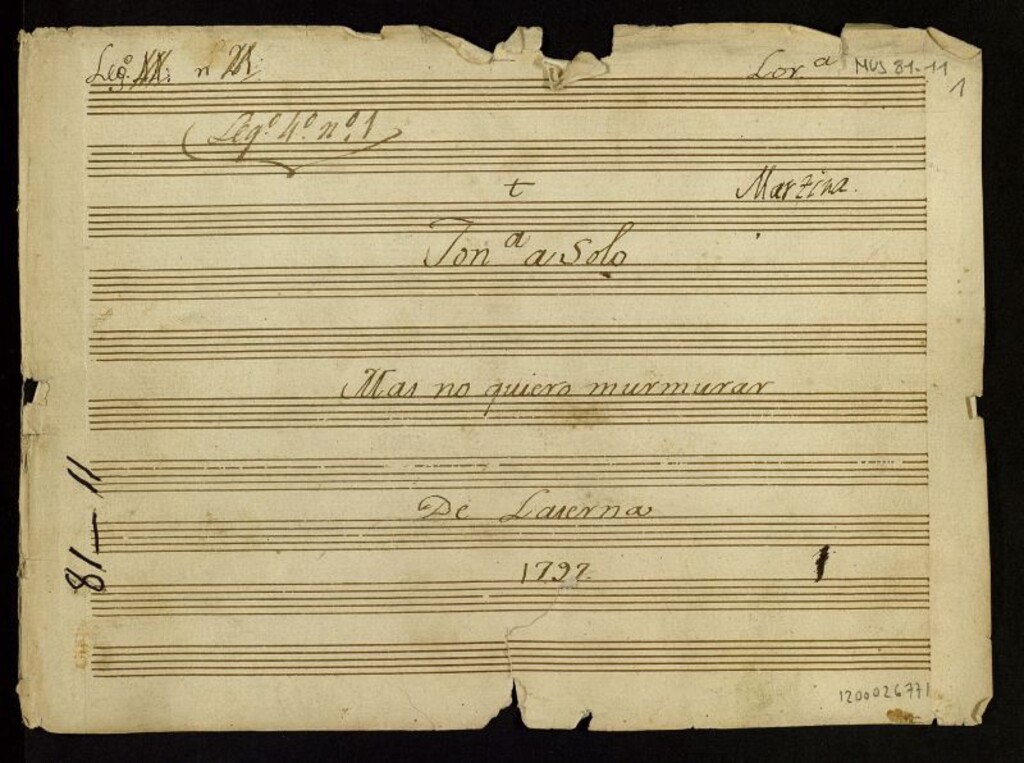 Leg.º n
Lor.ª MUS 81-11
1
Leg.º 4.º n.º 1
t
Martina.
Ton.ª a Solo
Mas no quiero murmurar
De Laserna
1797.
1
81-11
1200026771